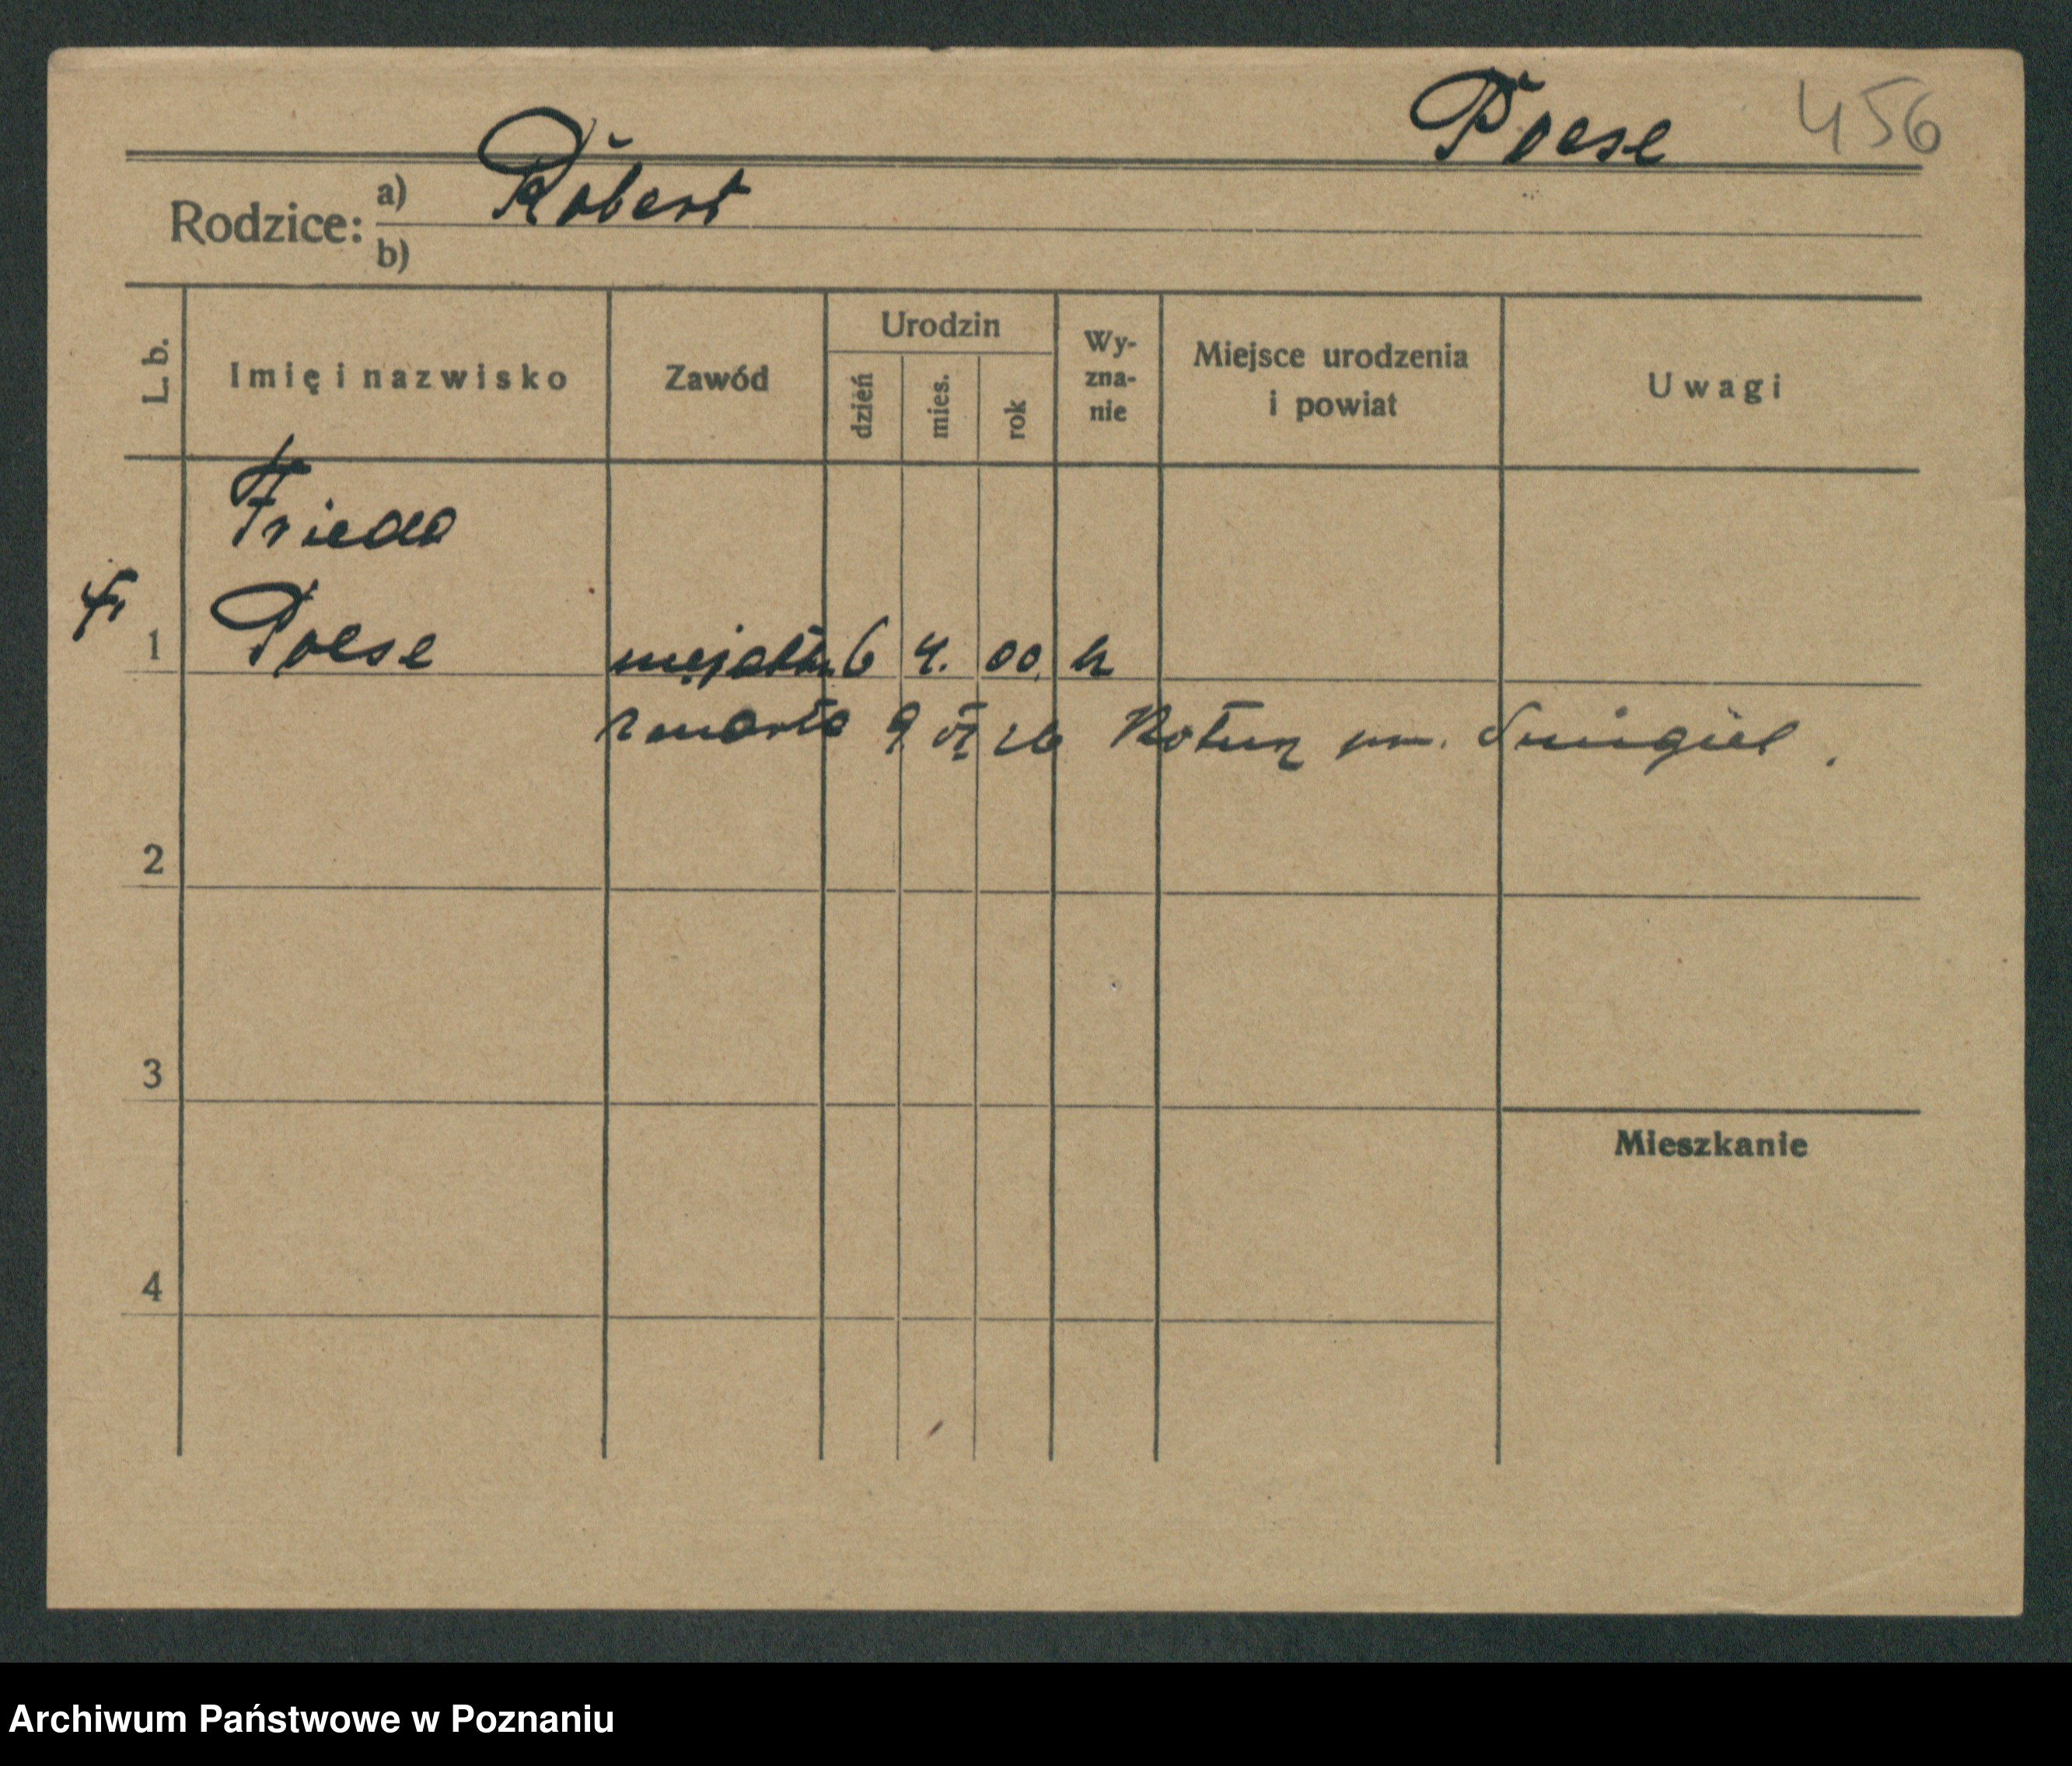 Poese 456
Rodzice: a) Robert
b)
L. b. Imię i nazwisko Zawód Urodzin dzień mies. rok Wyznanie Miejsce urodzenia i powiat Uwagi
Frieda
1 Poese 6 4. 00.
zmarła 9 VI 26 pow. Śmigiel.
2
3
Mieszkanie
4
Archiwum Państwowe w Poznaniu